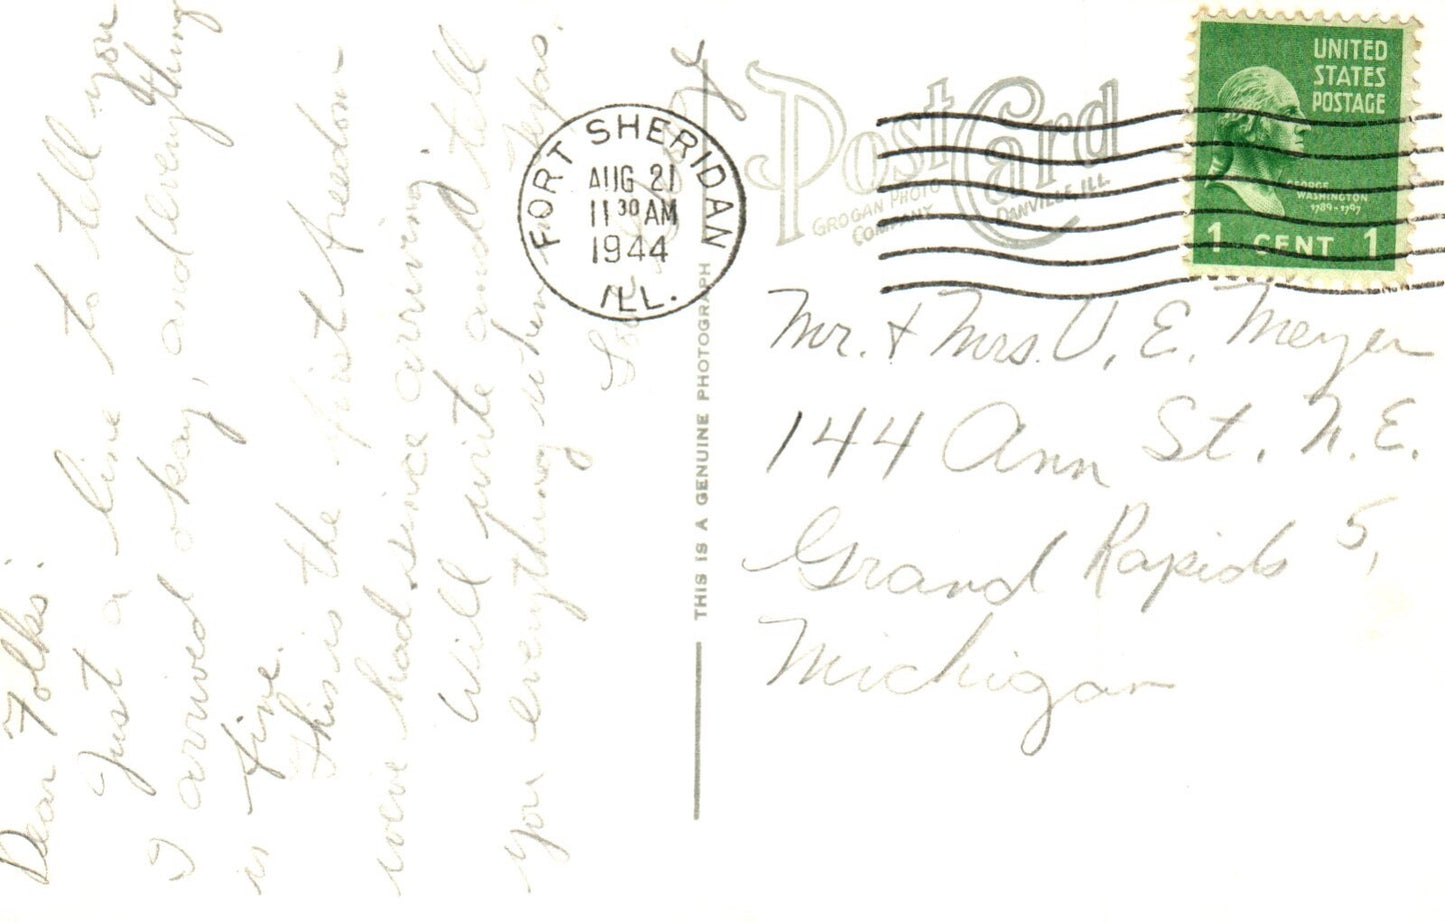 Dear Folks:
Just a line to tell you
I arrived okay, and everything
is fine.
This is the first freedom
weve had since arriving
Will write and tell
you everything when
Texas.
THIS IS A GENUINE PHOTOGRAPH
FORT SHERIDAN
AUG 21
11 30 AM
1944
ILL.
Post Card
GROGAN PHOTO
COMPANY
DANVILLE, ILL.
UNITED
STATES
POSTAGE
GEORGE
WASHINGTON
1789-1797
1 CENT 1
Mr. & Mrs. V. E. Meyer
144 Ann St. N.E.
Grand Rapids 5,
Michigan